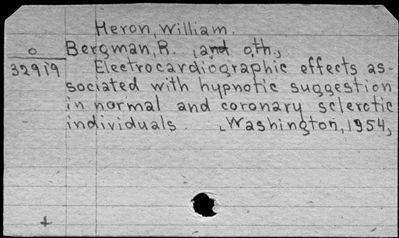 Heron, William.
o Bergman, R. , and oth.,
32919 Electrocardiographic effects as-
sociated with hypnotic suggestion
in normal and coronary sclerotic
individuals. , Washington, 1954,
+